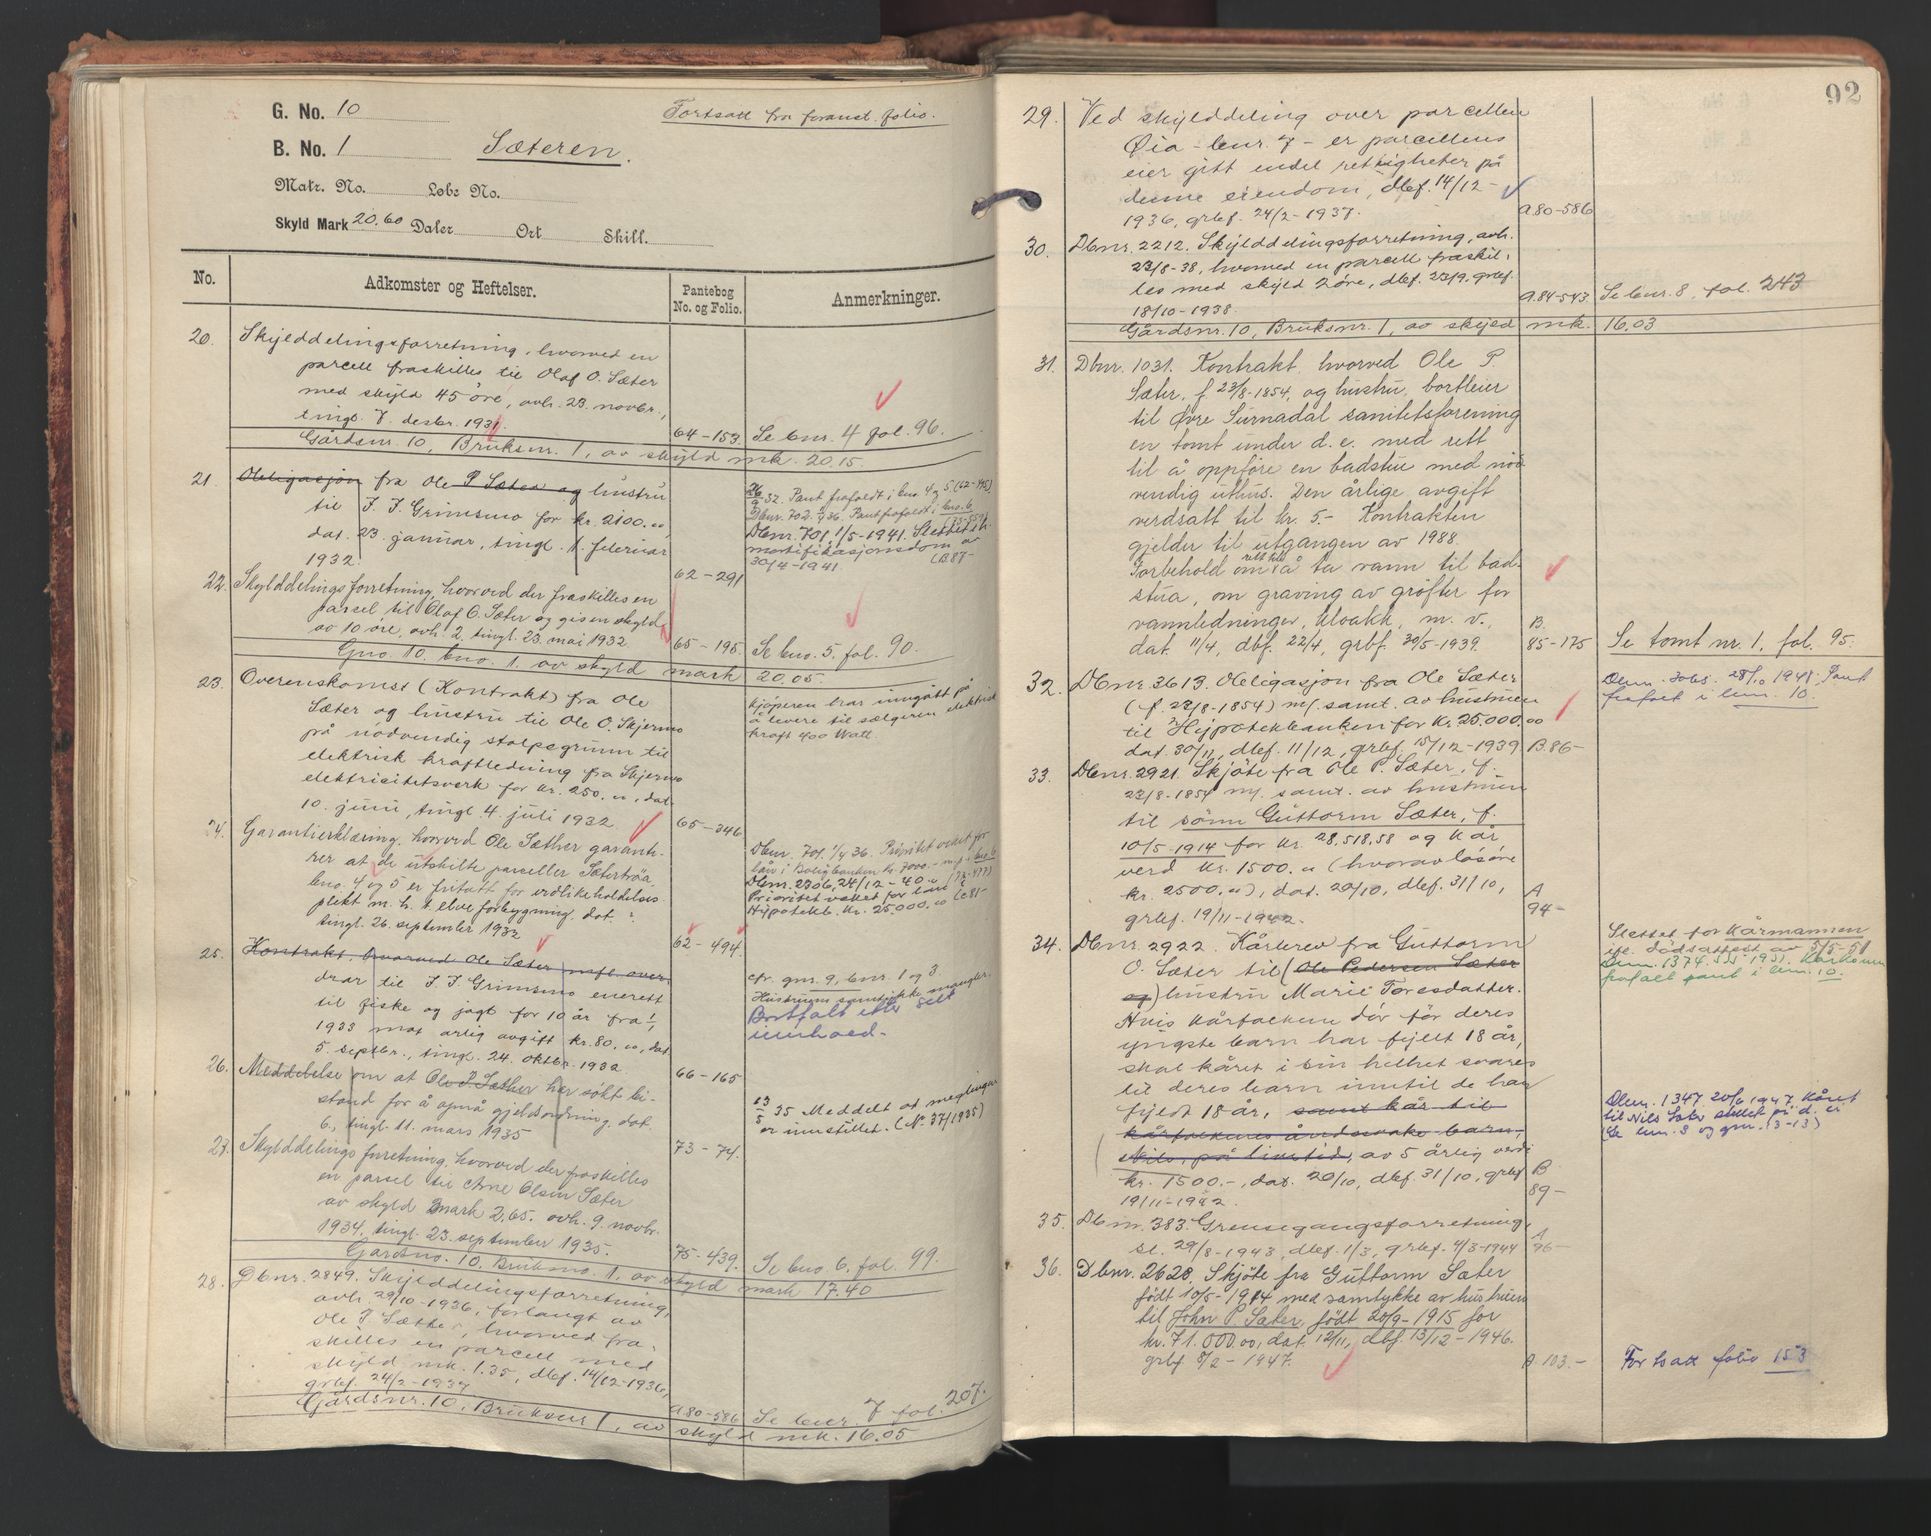 G. No. 10
Fortsatt fra foranst. folio.
B. No. 1
Sæteren.
Matr. No. Løbe No.
Skyld Mark 20.60 Daler Ort Skill.
No. Adkomster og Heftelser. Pantebog No. og Folio. Anmerkninger.
20. Skylddelingsforretning, hvorved en
parcell fraskilles til Olaf O. Sæter
med skyld 45 øre, avh. 23. novbr.,
tingl. 7. desbr. 1931. 64-153. Se bnr. 4 fol. 96.
Gårdsnr. 10, Bruksnr. 1, av skyld mk. 20.15.
21. Obligasjon fra Ole P Sæter og hustru
til J. J. Grimsmo for kr. 2100.00
dat. 23. januar, tingl. 1. februar
1932. 62-291
32. Pant frafaldt i bnr. 4 og 5 (62-492)
Dbnr. 702. 36. Pant frafaldt i bno. 6
Dbnr. 701, 1/5-1941. Slettet ifl.
mortifikasjonsdom av
30/4-1941. (B87-
22. Skylddelingsforretning, hvorved der fraskilles en
parsel til Olaf O. Sæter og gis en skyld
av 10 øre, avh. 2. tingl. 23. mai 1932. 65-195. Se bno. 5. fol. 90.
Gno. 10. bno. 1. av skyld mark 20.05.
23. Overenskomst (Kontrakt) fra Ole
Sæter og hustru til Ole O. Skjermo
på nødvendig stolpegrunn til
elektrisk kraftledning fra Skjermo
elektricitetsverk for kr. 250.00, dat.
10. juni, tingl. 4. juli 1932. 65-346
kjøperen har inngått på
å levere til sælgeren elektrisk
kraft 400 Watt.
24. Garantierklæring, hvorved Ole Sæther garante-
rer at de utskilte parceller Sætertrøa,
bno. 4 og 5 er fritatt for vedlikeholdelses-
plekt m. h. t. elveforbygning. dat ?
tingl. 26. september 1932 62-494
Dbnr. 701. 1/4 36. Prioritet veket for
lån i Boligbanken kr. 7000.- m.p. i bno. 6
Dbnr. 2306, 24/12-40. (73-477)
Prioritet veket for lån i
Hypotekb. kr. 25.000,00 (c81-
25. Kontrakt hvorved Ole Sæter mfl. over-
drar til J. J. Grimsmo enerett
til fiske og jagt for 10 år fra 1/1
1933 mot årlig avgift kr. 80.00, dat
5. septbr., tingl. 24. oktbr. 1932. 66-165
cfr. gnr. 9, bnr. 1 og 3.
Hustruens samtykke mangler.
Bortfalt etter sitt
innhold.
26. Meddelelse om at Ole P. Sæther har søkt bi-
stand for å opnå gjeldsordning, dat.
6., tingl. 11. mars 1935 73-74.
13/5 35 Meddelt at meglingen
er innstillet. (No. 37/1935)
27. Skylddelingsforretning, hvorved der fraskilles
en parsel til Arne Olsen Sæter
av skyld mark 2,65. avh. 9. novbr.
1934, tingl. 23. september 1935. 75-439. Se bno. 6. fol. 99.
Gårdsno. 10. Bruksno. 1. av skyld mark 17.40
28. Dbnr. 2849. Skylddelingsforretning,
avh. 29/10-1936, forlangt av
Ole P. Sæther, hvorved fra-
skilles en parcell med
skyld mk. 1.35, dbf. 14/12-1936,
grbf. 24/2-1937 A.80-586 Se bnr. 7 fol. 207.
Gårdsnr. 10, Bruksnr. 1, av skyld mk. 16.05
92
29. Ved skylddeling over parcellen
Øia - bnr. 7 - er parcellens
eier gitt endel rettigheter på
denne eiendom, dbf. 14/12-
1936, grbf. 24/2-1937. A.80-586
30. Dbnr. 2212. Skylddelingsforretning, avh.
23/8-38, hvorved en parcell fraskil-
les med skyld 2 øre, dbf. 23/9, grbf.
18/10-1938. A.84-543. Se bnr. 8, fol. 243
Gårdsnr. 10, Bruksnr. 1, av skyld mk. 16.03
31. Dbnr. 1031. Kontrakt, hvorved Ole P.
Sæter, f. 23/8-1854, og hustru, bortleier
til Øvre Surnadal sanitetsforening
en tomt under d. e. med rett
til å oppføre en badstu med nød-
vendig uthus. Den årlige avgift
verdsatt til kr. 5.- Kontrakten
gjelder til utgangen av 1988.
Forbehold om rett til å ta vann til bad-
stua, om graving av grøfter for
vannledninger, kloakk, m. v.,
dat. 11/4, dbf. 22/4, grbf. 30/5-1939. B. 85-175 Se tomt nr. 1, fol. 95.
32. Dbnr. 3613. Obligasjon fra Ole Sæter
(f. 23/8-1854) m/. samt. av hustruen
til Hypotekbanken for kr. 25.000,00
dat. 30/11, dbf. 11/12, grbf. 15/12-1939 B.86-
Dbnr. 3065. 28/10 1941. Pant
frafalt i bnr. 10.
33. Dbnr. 2921. Skjøte fra Ole P. Sæter, f.
23/8-1854 m/. samt. av hustruen
til sønn Guttorm Sæter, f.
10/5-1914 for kr. 28.518,58 og kår
verd kr. 1500.00 (hvorav løsøre
kr. 2500.00), dat. 20/10, dbf. 31/10,
grbf. 19/11-1942. A 94-
34. Dbnr. 2922. Kårbrev fra Guttorm
O. Sæter til (Ole Pedersen Sæter
og) hustru Marie Toresdatter.
Hvis kårfolkene dør før deres
yngste barn har fyllt 18 år,
skal kåret i sin helhet svares
til deres barn inntil de har
fyldt 18 år, samt kår til
kårfolkenes åndssvake barn,
Nils, på livstid, av 5 årlig verdi
kr. 1500.-, dat. 20/10, dbf. 31/10, grbf
19/11-1942. B 89-
Slettet for kårmannen
ifl. dødsattest av 5/5-51
Dbnr. 1374 1951. Kårkonen
frafalt pant i bnr. 10.
Dbnr. 1347. 20/6 1947. Kåret
til Nils Sæter slettet på d. ei
(Se bnr. 3 og gnr. 13-13)
35. Dbnr. 383. Grensegangsforretning,
sl. 29/8-1943, dbf. 1/3, grbf. 4/3-1944 A 96-
36. Dbnr. 2628. Skjøte fra Guttorm Sæter
født 10/5-1914 med samtykke av hustruen
til John P. Sæter, født 20/9-1915 for
kr. 71.000.00, dat. 12/11, dbf. 13/12-1946.
grbf 8/2-1947. A. 103.-
Fortsatt folio 153